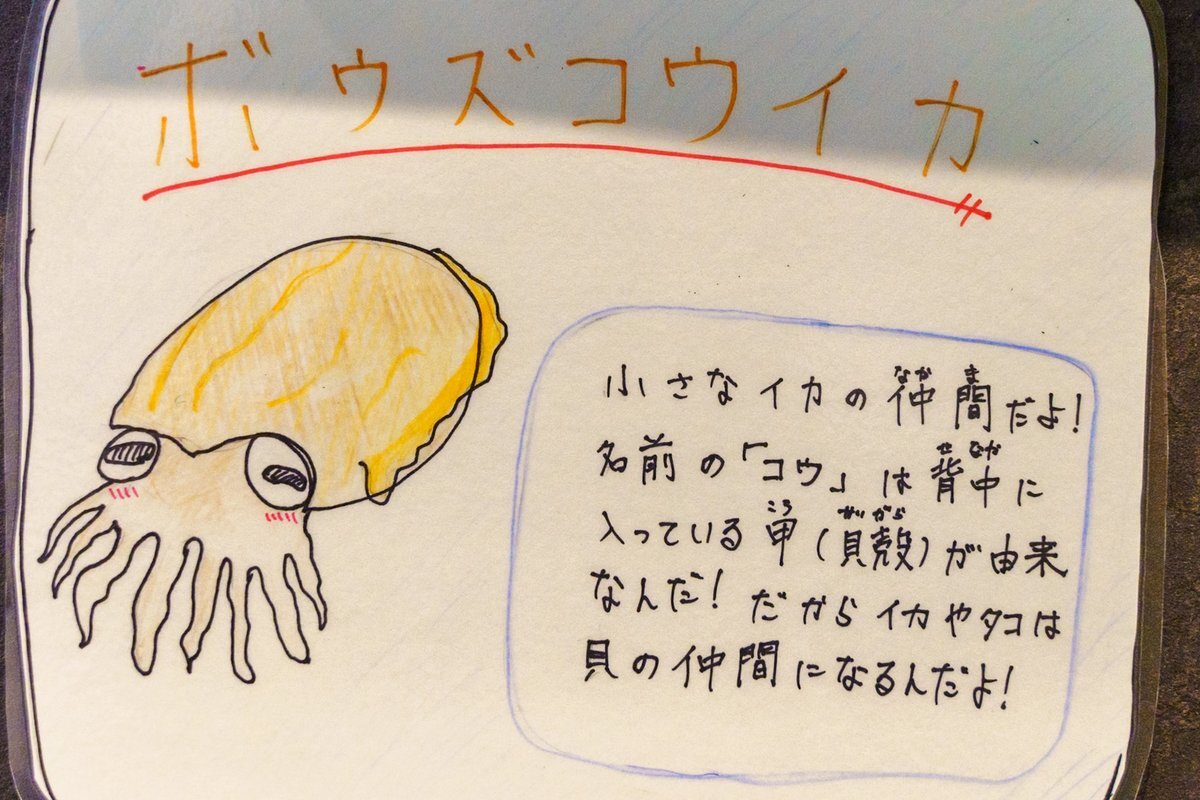 ボウズコウイカ
小さなイカの仲間だよ!
なかま
名前の「コウ」は背中に
せなか
入っている甲(貝殻)が由来
こう
がら
なんだ! だからイカやタコは
貝の仲間になるんだよ!